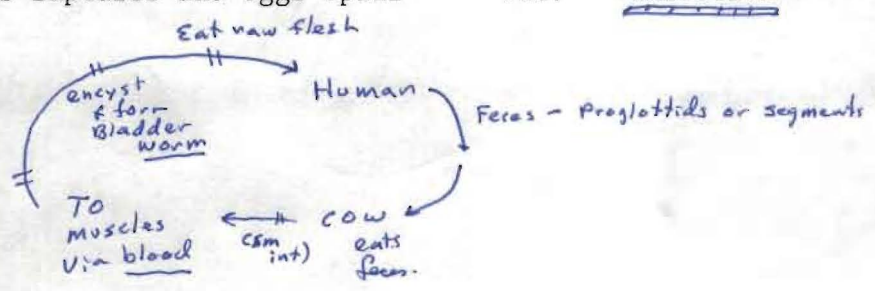 Eat raw flesh
encyst
& form
Bladder
worm
Human
Feces - Proglottids or segments
TO
muscles
via blood
(sm
int)
COW
eats
feces.